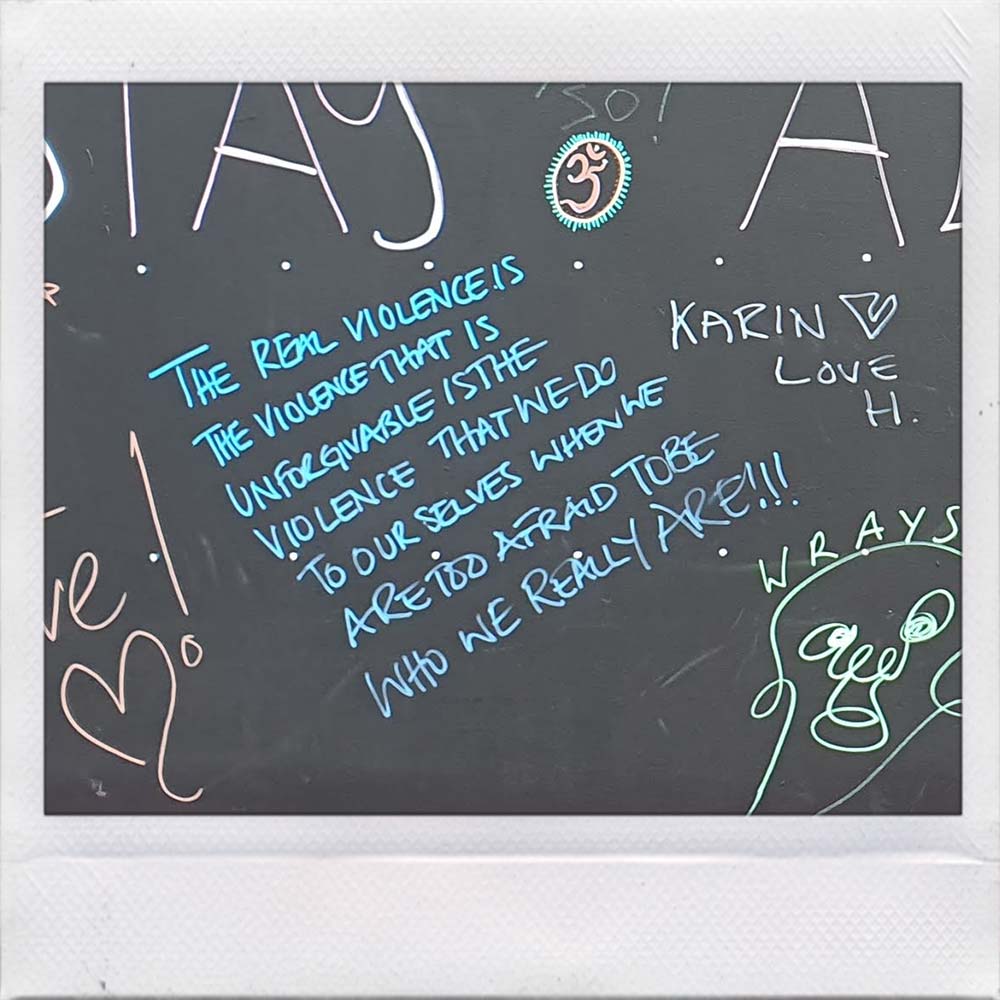 TAY
30!
ॐ
A
THE REAL VIOLENCE IS
THE VIOLENCE THAT IS
UNFORGIVABLE IS THE
VIOLENCE THAT WE DO
TO OUR SELVES WHEN WE
ARE TOO AFRAID TO BE
WHO WE REALLY ARE!!!
KARIN
LOVE
H.
ve!
WRAYS